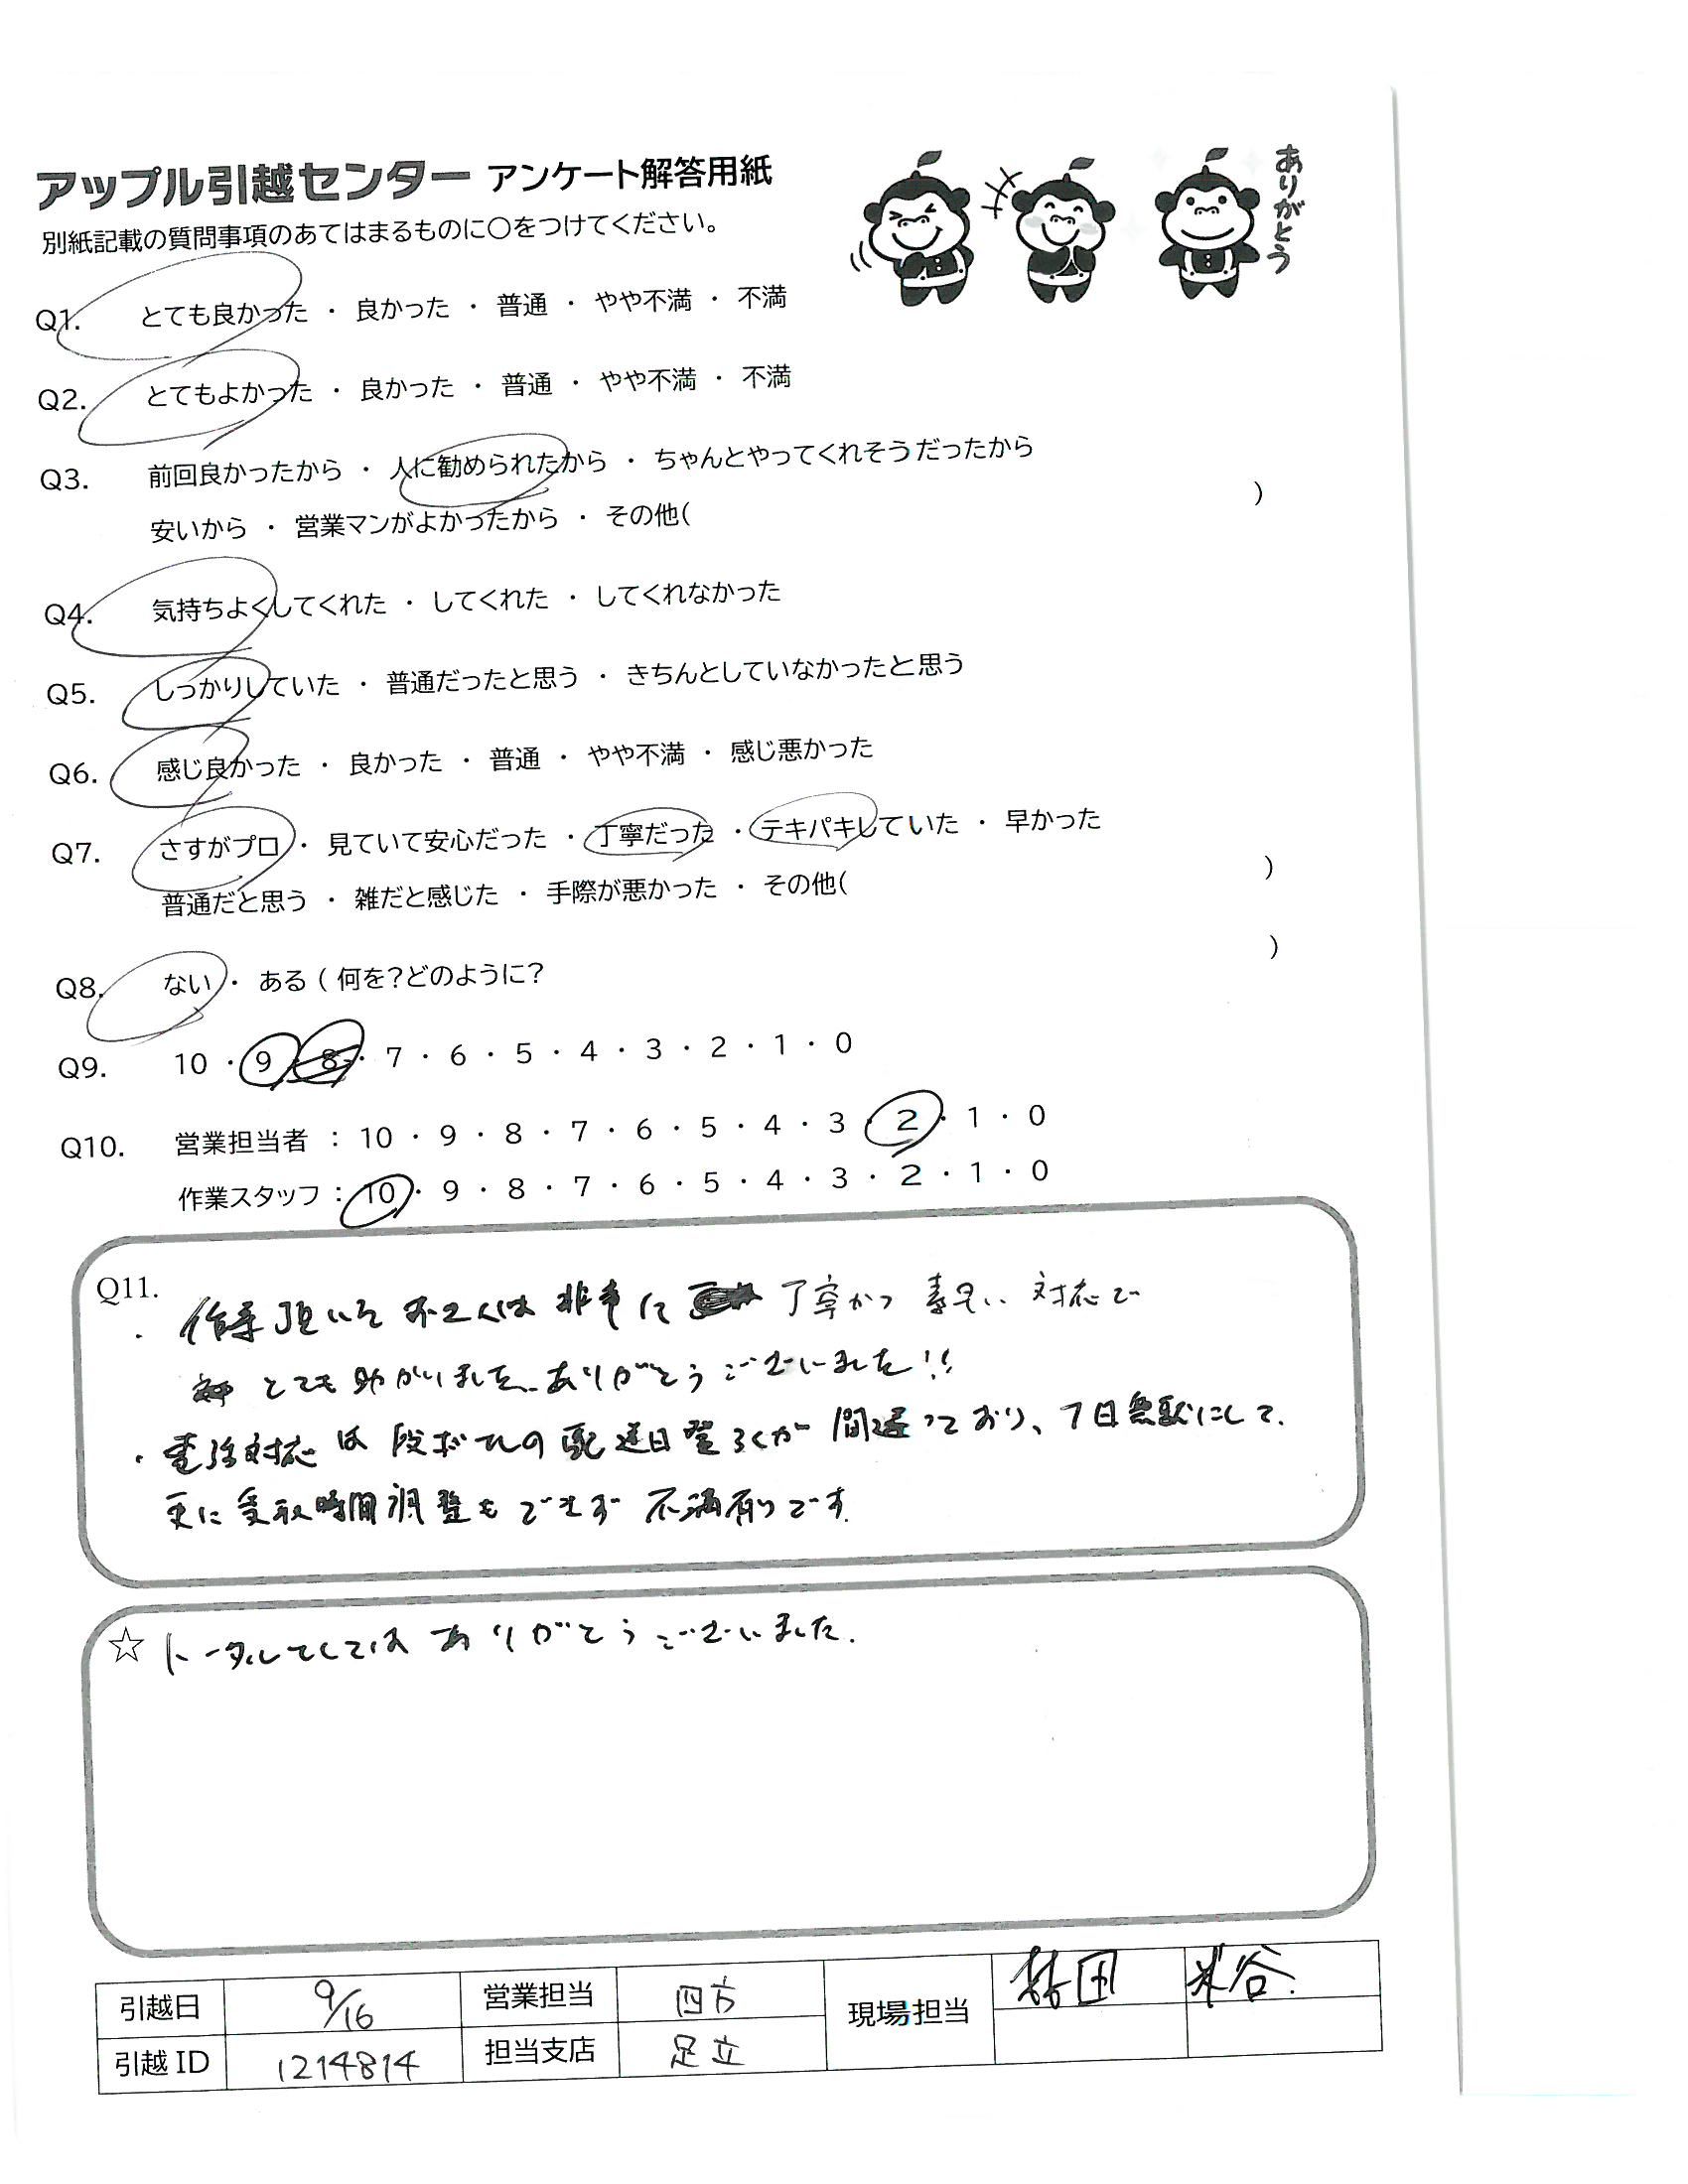 アップル引越センター アンケート解答用紙
ありがとう
別紙記載の質問事項のあてはまるものに〇をつけてください。
Q1. とても良かった ・ 良かった ・ 普通 ・ やや不満 ・ 不満
Q2. とてもよかった ・ 良かった ・ 普通 ・ やや不満 ・ 不満
Q3. 前回良かったから ・ 人に勧められたから ・ ちゃんとやってくれそうだったから
安いから ・ 営業マンがよかったから ・ その他( )
Q4. 気持ちよくしてくれた ・ してくれた ・ してくれなかった
Q5. しっかりしていた ・ 普通だったと思う ・ きちんとしていなかったと思う
Q6. 感じ良かった ・ 良かった ・ 普通 ・ やや不満 ・ 感じ悪かった
Q7. さすがプロ ・ 見ていて安心だった ・ 丁寧だった ・ テキパキしていた ・ 早かった
普通だと思う ・ 雑だと感じた ・ 手際が悪かった ・ その他( )
Q8. ない ・ ある ( 何を?どのように? )
Q9. 10 ・ 9 ・ 8 ・ 7 ・ 6 ・ 5 ・ 4 ・ 3 ・ 2 ・ 1 ・ 0
Q10. 営業担当者 : 10 ・ 9 ・ 8 ・ 7 ・ 6 ・ 5 ・ 4 ・ 3 ・ 2 ・ 1 ・ 0
作業スタッフ : 10 ・ 9 ・ 8 ・ 7 ・ 6 ・ 5 ・ 4 ・ 3 ・ 2 ・ 1 ・ 0
Q11.
・ 作業頂いた お二人は 非常に 丁寧かつ 素早い 対応で
とても助かりました。ありがとうございました!!
・ 電話対応は 段ボールの 配送日登ろくが 間違っており、1日無駄にして、
更に 受取時間調整も できず 不満有りです.
☆ トータルとしては ありがとうございました.
引越日 9/16 営業担当 四方 現場担当 米谷.
引越ID 1214814 担当支店 足立